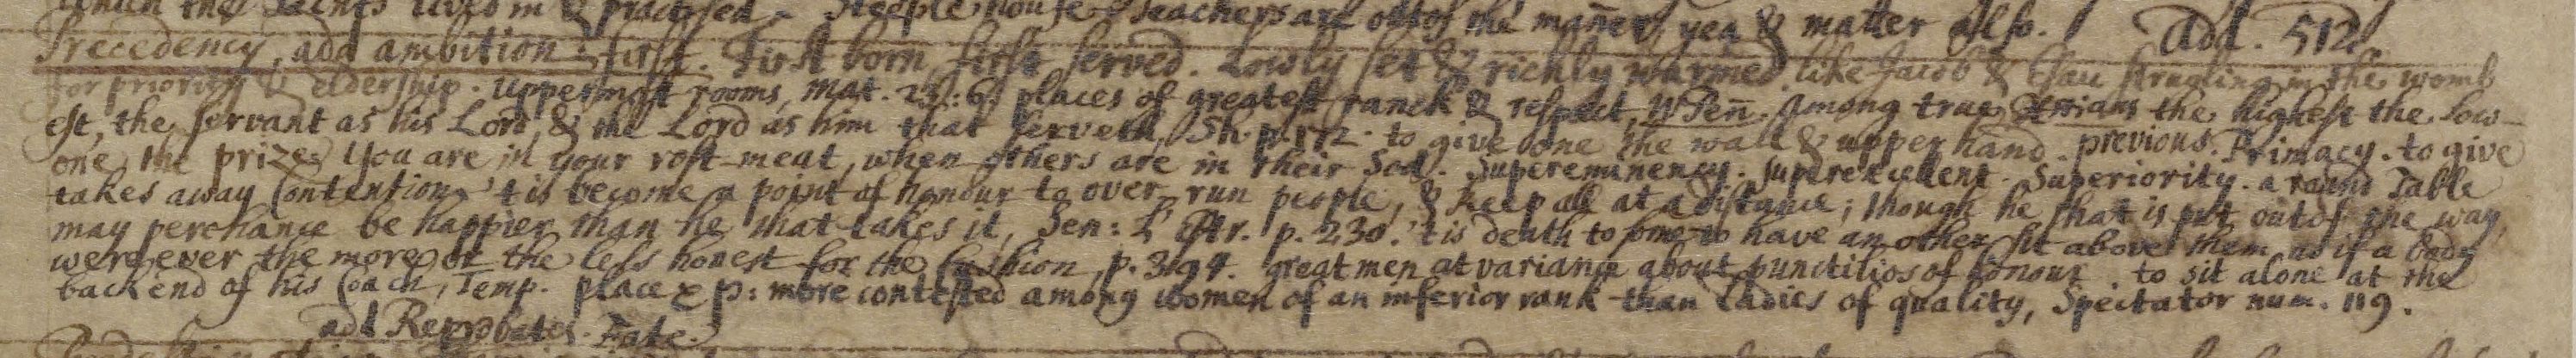 which the Saints lived in & practised. Steeple house Teachers are out of the mañer, yea & matter also. / Add. 512
Precedency, add ambition: first. First born, first served. Lowly set & richly warmed. like Jacob & Esau strugling in the womb
for priority & eldership. uppermost rooms, mat. 23:6. places of greatest ranck & respect, WPeñ. Among true the highest the low-
est, the servant as his Lord, & the Lord as him that serveth, Sh. p. 172. to give one the wall & upper hand. previous. Primacy. to give
one the prize. You are in your rost-meat, when others are in their Sod. Supereminency. Superexcellent. Superiority. a round Table
takes away Contention. 't is become a point of honour to over-run people, & keep all at a distance; though he that is put out of the way,
may perchance be happier than he that takes it, Sen: L'Estr. p. 230. 't is death to some to have an other sit above them, as if a body
were ever the more or the less honest for the Cushion, p. 394. great men at variance about punctilios of honour. to sit alone at the
back end of his Coach, Temp. place & p: more contested among women of an inferior rank than Ladies of quality, Spectator num. 119.
add Reprobates. Fate.